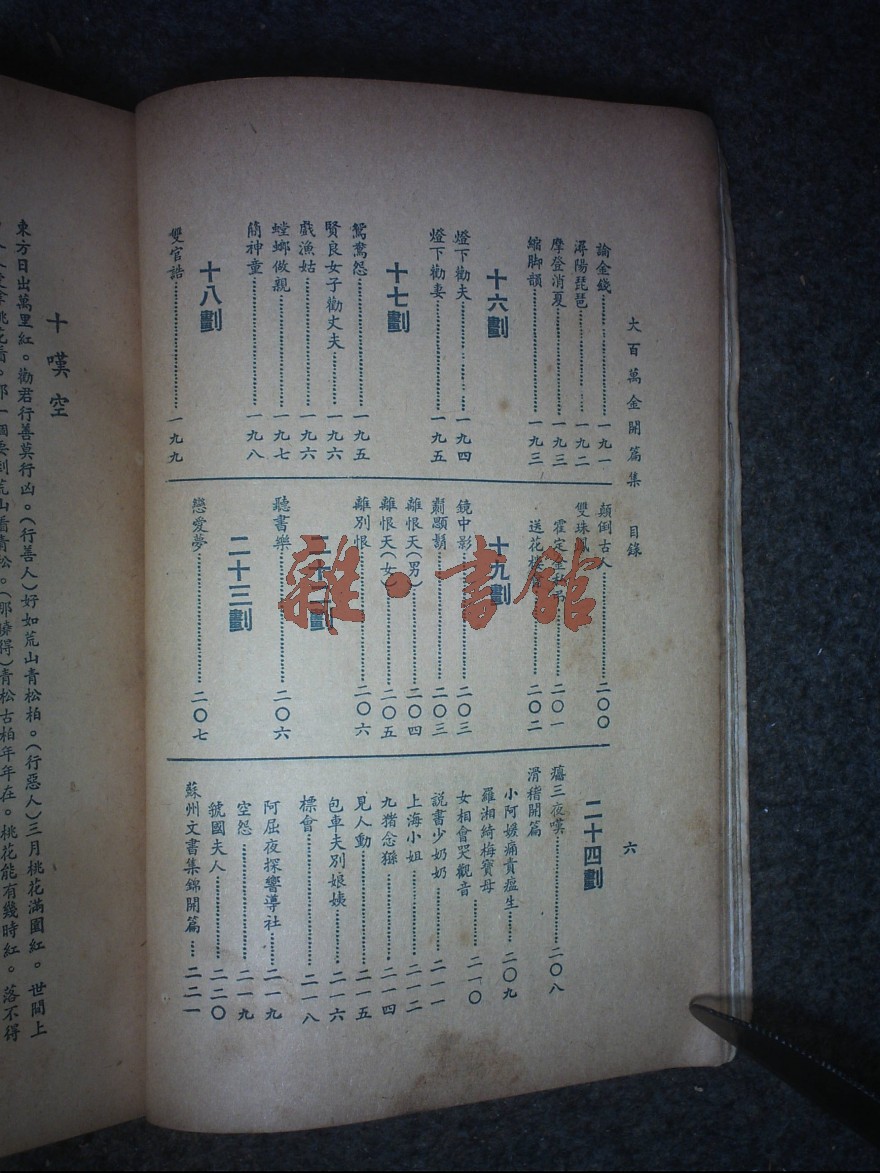 大百萬金開篇集 目錄 六
論金錢……一九一
潯陽琵琶……一九二
摩登消夏……一九三
縮脚韻……一九三
十六劃
燈下勸夫……一九四
燈下勸妻……一九五
十七劃
鴛鴦怨……一九五
賢良女子勸丈夫……一九六
戲漁姑……一九六
螳螂做親……一九七
簡神童……一九八
十八劃
雙官誥……一九九
顛倒古人……二〇〇
雙珠鳳
霍定金私……二〇一
送花樓會……二〇二
十九劃
鏡中影……二〇三
鬍……二〇三
離恨天(男)……二〇四
離恨天(女)……二〇五
離別恨……二〇六
二十二劃
聽書樂……二〇六
二十三劃
戀愛夢……二〇七
二十四劃
癟三夜嘆……二〇八
滑稽開篇
小阿媛痛責瘟生……二〇九
羅湘綺梅寶母
女相會哭觀音……二一〇
說書少奶奶……二一一
上海小姐……二一二
九豬念……二一四
見人動……二一五
包車夫別娘姨……二一六
標會……二一八
阿屈夜探嚮導社……二一九
空怨……二一九
虢國夫人……二二〇
蘇州文書集錦開篇……二二一
雜·書館
十嘆空
東方日出萬里紅。勸君行善莫行凶。(行善人)好如荒山青松柏。(行惡人)三月桃花滿園紅。世間上
青松古柏年年在。桃花能有幾時紅。落不得